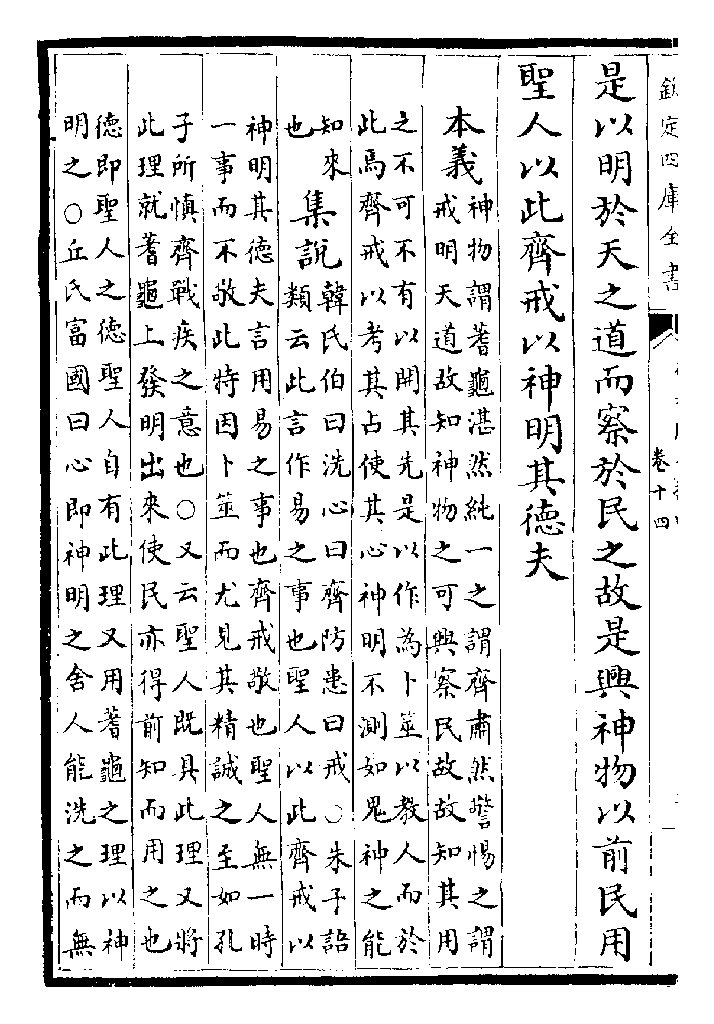 欽定四庫全書
卷十四
是以明於天之道而察於民之故是興神物以前民用
聖人以此齊戒以神明其德夫
本義神物謂蓍龜湛然純一之謂齊肅然警惕之謂
戒明天道故知神物之可興察民故故知其用
之不可不有以開其先是以作為卜筮以教人而於
此焉齊戒以考其占使其心神明不測如鬼神之能
知來
也
集說韓氏伯曰洗心曰齊防患曰戒○朱子語
類云此言作易之事也聖人以此齊戒以
神明其德夫言用易之事也齊戒敬也聖人無一時
一事而不敬此特因卜筮而尤見其精誠之至如孔
子所慎齊戰疾之意也○又云聖人既具此理又將
此理就蓍龜上發明出來使民亦得前知而用之也
德即聖人之德聖人自有此理又用蓍龜之理以神
明之○丘氏富國曰心即神明之舍人能洗之而無